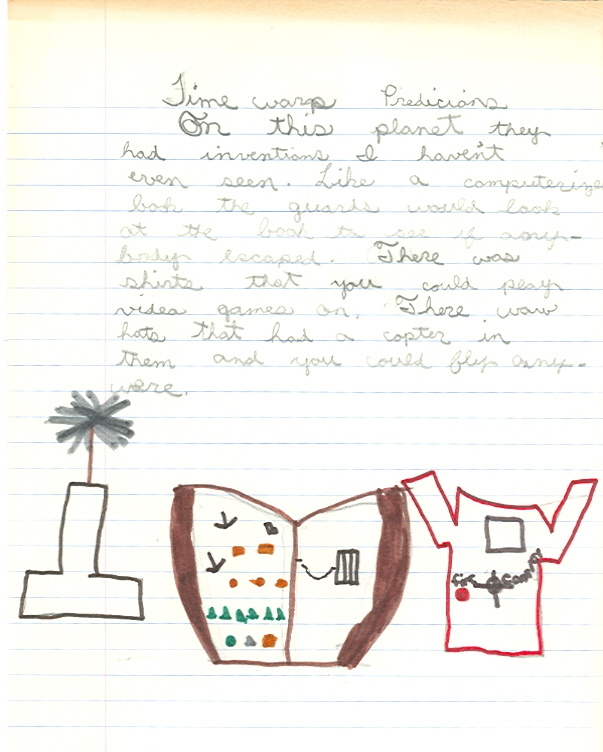 Time warp Predicions
On this planet they
had inventions I haven't
even seen. Like a computerize
book the guards would look
at the book to see if any-
body escaped. There was
shirts that you could play
video games on. There was
hats that had a copter in
them and you could fly any-
were.